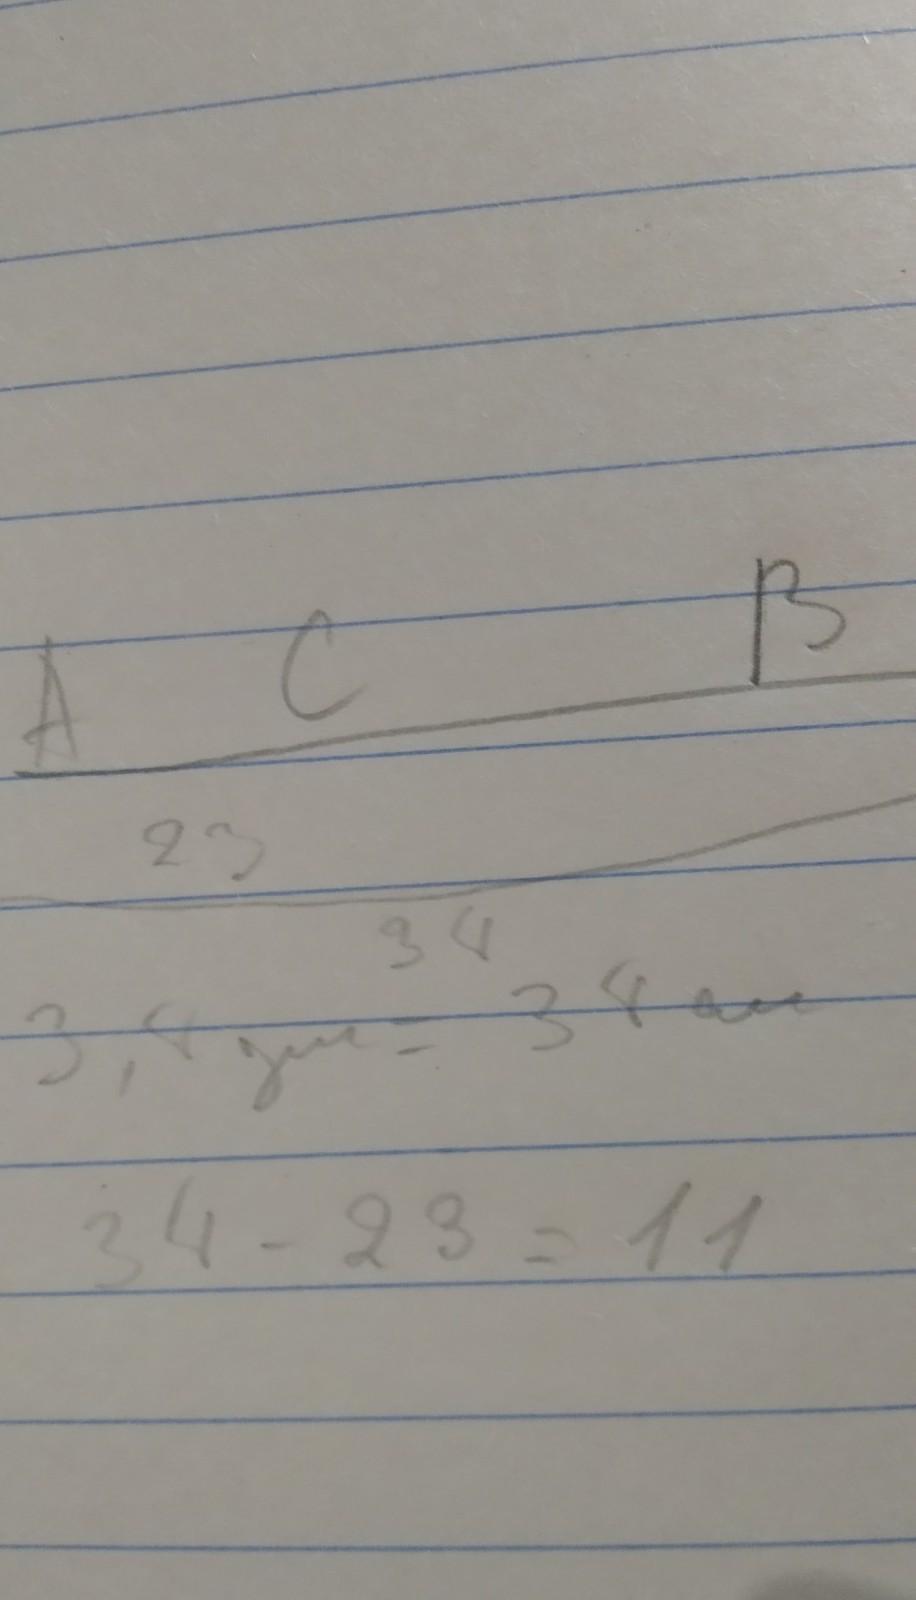 A C B
23
34
3,4 дм = 34 см
34 - 23 = 11